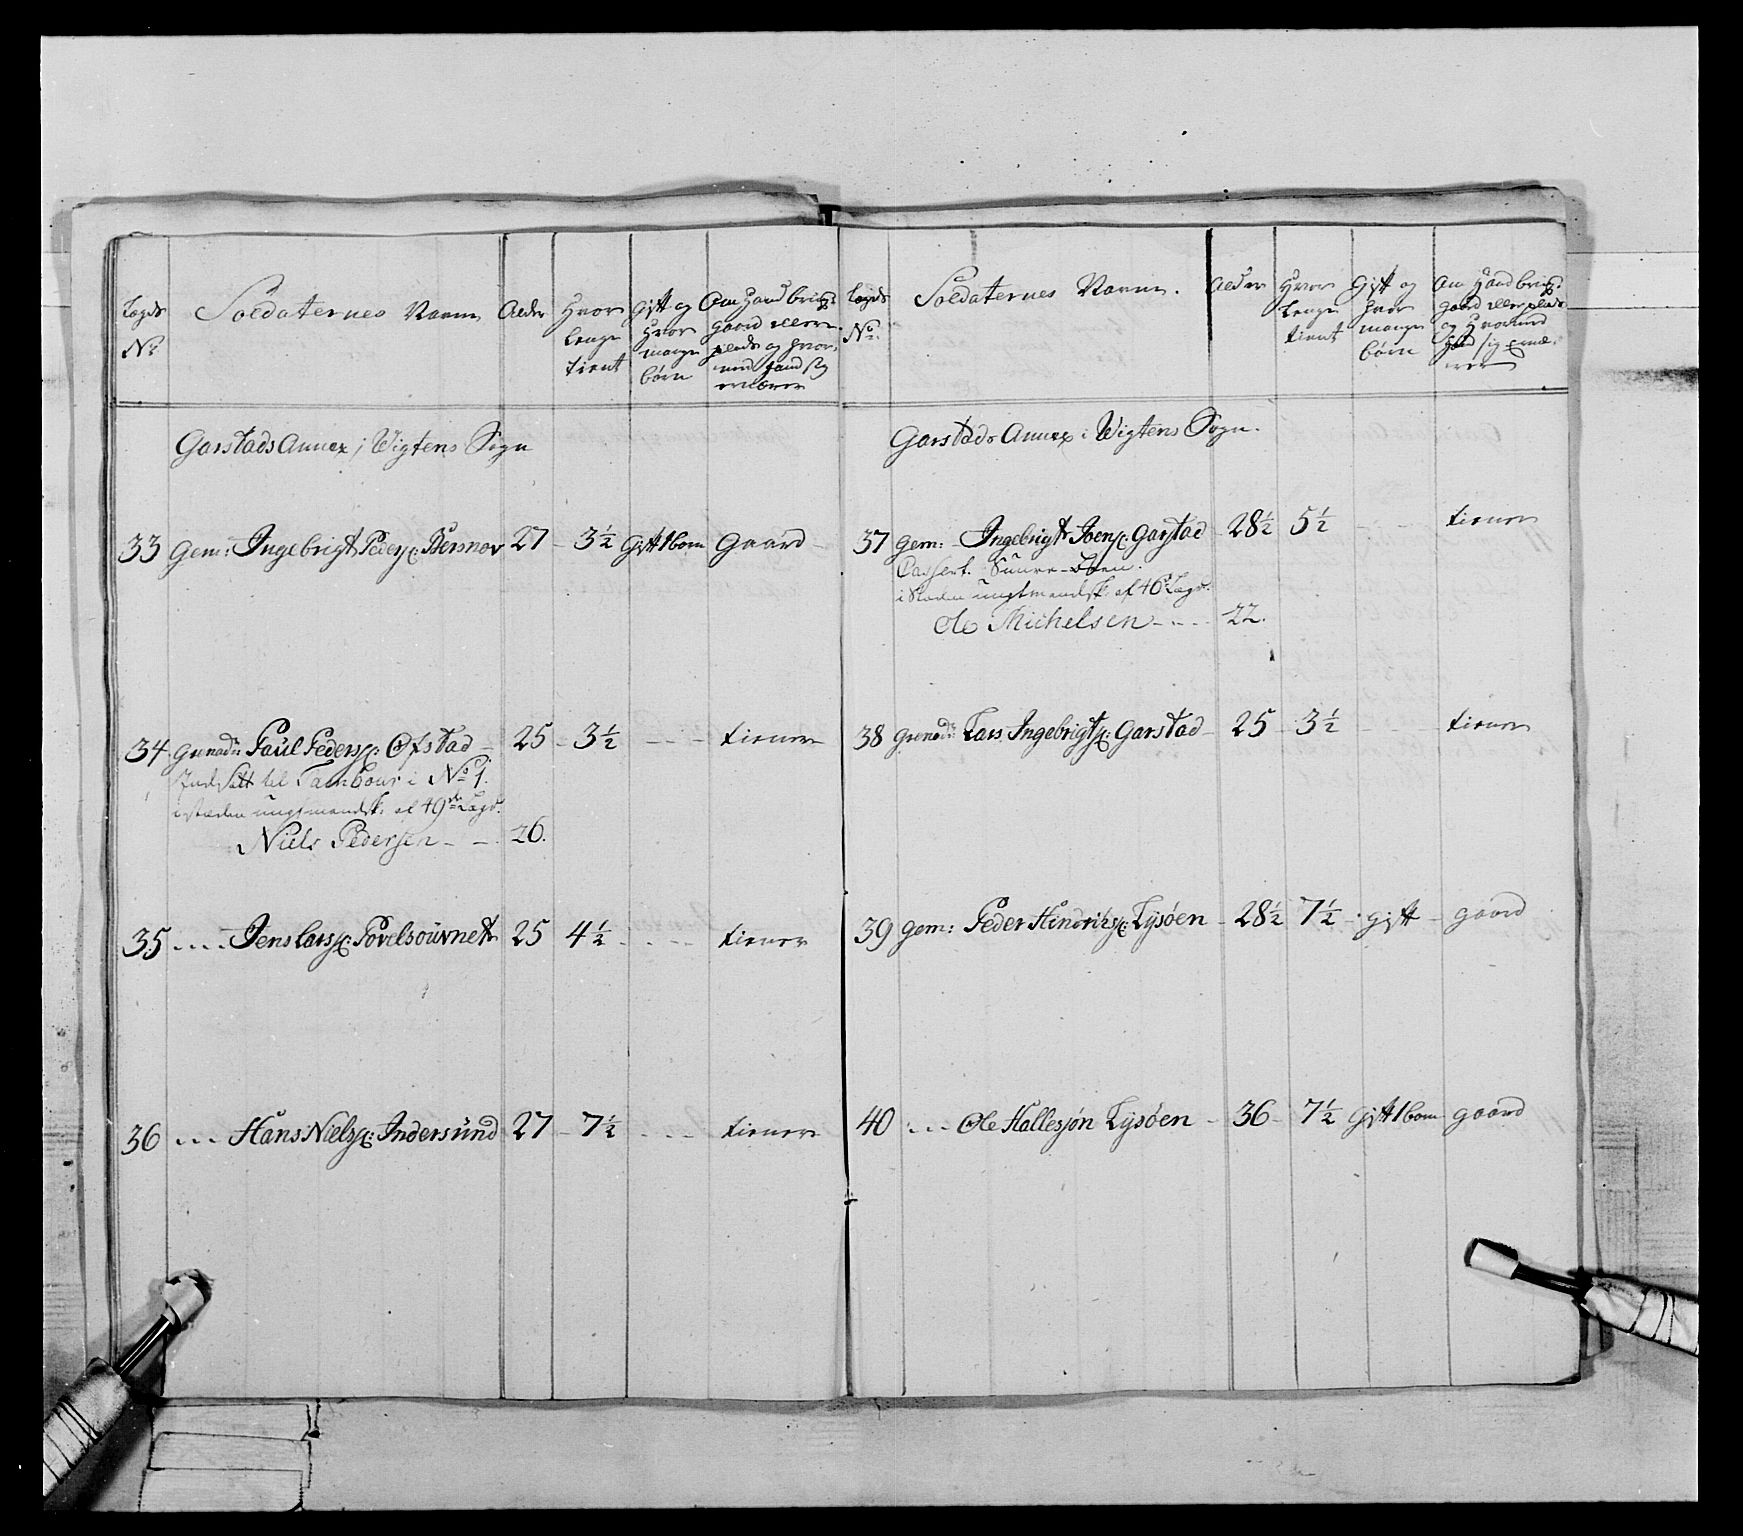 Lægds
No
Soldaternes Navne
Alder
Hvor
lenge
tient
Gift og
Hvor
mange
børn
Om Hand brug:
gaard eller
plads og hvor-
med hand sig
ernærer
Garstads Annex i Wigtens Sogn
33 Gem: Ingebrigt Peders: Bersnov 27 - 3½ Gift 1 barn Gaard
34 Grenad: Paul Peders: Ofstad 25 - 3½ - - - tiener
Indsatt til Tambour i No 1.
i stæden ungtmandsk: af 49de Lægd.
Niels Pedersen - - 26.
35 - - - - Jens Lars: Povelsouvnet 25 4½ - - - - tiener
36 - - - Hans Niels: Indersund 27 - 7½ - - - tiener
Lægds
No
Soldaternes Navne.
Alder
Hvor
Lenge
tient
Gift og
hvor
mange
børn
Om Hand brug:
gaard eller plads
og Hvormed
hand sig Ernæ-
rer
Garstads Annex i Wigtens Sogn.
37 Gem: Ingebrigt Joens: Garstad 28½ 5½ - - tiener
Cassert.
i Stæden ungtmandsk: af 46de Lægd.
Ole Michelsen - - - - 22.
38 Grenad: Lars Ingebrigts: Garstad - 25 3½ - - tiener
39 Gem: Peder Hendrichs: Lysöen - 28½ 7½ - gift - gaard
40 - - - Ole Hallesøn Lysöen - 36 - 7½ Gift 1 barn gaard